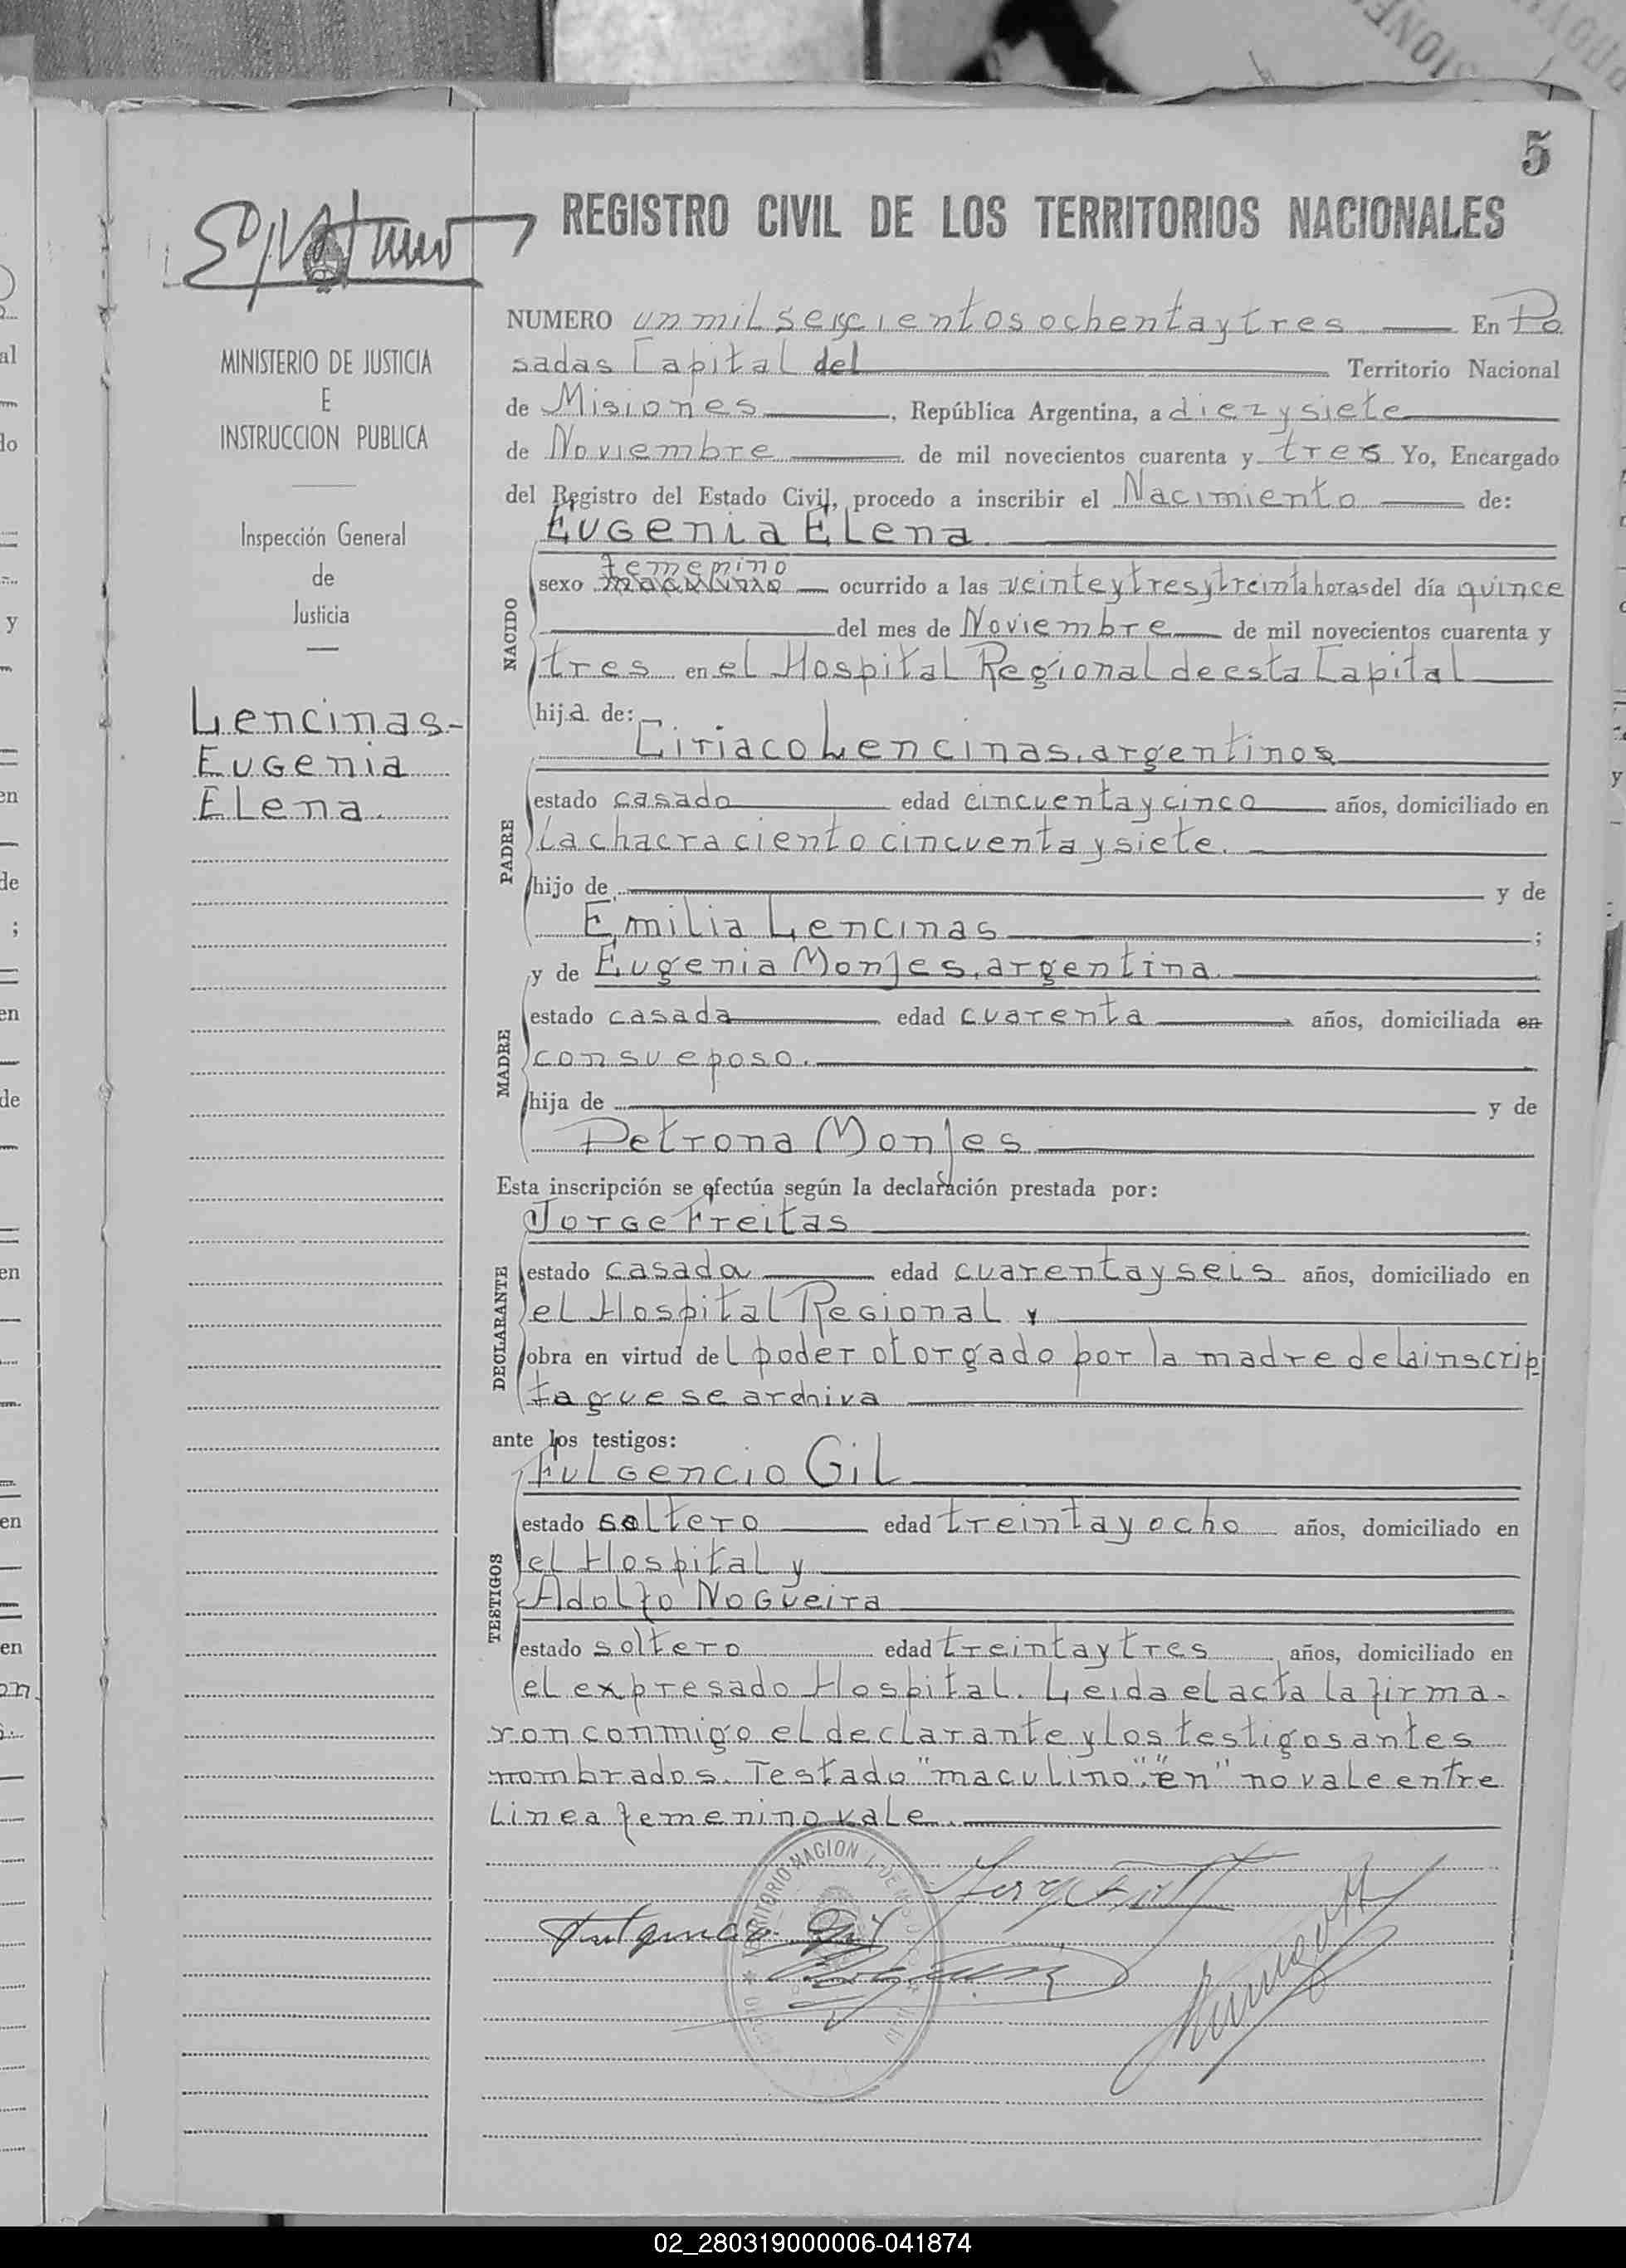 5
REGISTRO CIVIL DE LOS TERRITORIOS NACIONALES
MINISTERIO DE JUSTICIA
E
INSTRUCCION PUBLICA
Inspección General
de
Justicia
Lencinas-
Eugenia
Elena.
NUMERO un mil seiscientos ochenta y tres En Po
sadas Capital del Territorio Nacional
de Misiones, República Argentina, a diez y siete
de Noviembre de mil novecientos cuarenta y tres Yo, Encargado
del Registro del Estado Civil, procedo a inscribir el Nacimiento de:
Eugenia Elena.
femenino
NACIDO
sexo maculino ocurrido a las veinte y tres y treinta horas del día quince
del mes de Noviembre de mil novecientos cuarenta y
tres en el Hospital Regional de esta Capital
hija de:
Ciriaco Lencinas, argentinos
PADRE
estado casado edad cincuenta y cinco años, domiciliado en
la chacra ciento cincuenta y siete.
hijo de y de
Emilia Lencinas ;
y de Eugenia Monjes, argentina
MADRE
estado casada edad cuarenta años, domiciliada en
con su eposo.
hija de y de
Petrona Monjes
Esta inscripción se efectúa según la declaración prestada por:
Jorge Freitas
DECLARANTE
estado casado edad cuarenta y seis años, domiciliado en
el Hospital Regional y
obra en virtud del poder otorgado por la madre de la inscrip-
ta que se archiva
ante los testigos:
Fulgencio Gil
TESTIGOS
estado soltero edad treinta y ocho años, domiciliado en
el Hospital y
Adolfo Nogueira
estado soltero edad treinta y tres años, domiciliado en
el expresado Hospital. Leida el acta la firma-
ron conmigo el declarante y los testigos antes
nombrados. Testado "maculino". "en" no vale entre
linea femenino vale.
Fulgencio Gil
02_280319000006-041874